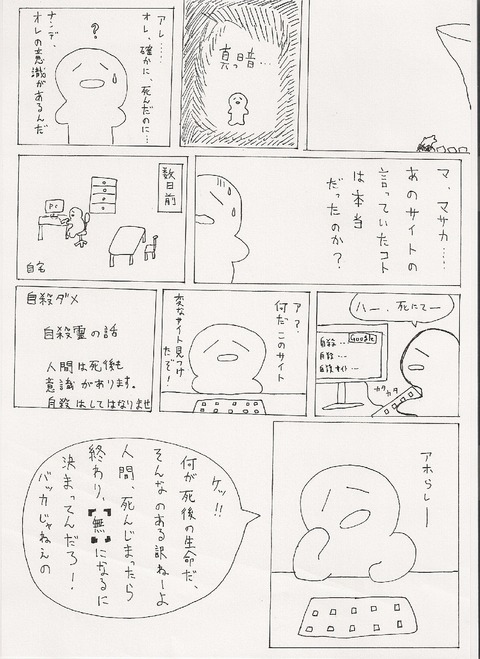 真っ暗…
アレ……
オレ、確かに、死んだのに…
?
ナンデ、
オレの意識があるんだ
マ、マサカ……
あのサイトの
言っていたコト
は本当
だったのか？
数日前
PC
自宅
ハー、死にてー
Google
自殺…
自殺…
自殺サイト…
カタカタ
ア？
何だこのサイト
変なサイト見つけ
たぞ！
自殺ダメ
自殺霊の話
人間は死後も
意識があります。
自殺はしてはなりませ
アホらしー
ケッ!!
何が死後の生命だ、
そんなのある訳ねーよ
人間、死んじまったら
終わり、【無】になるに
決まってんだろ！
バッカじゃねぇの